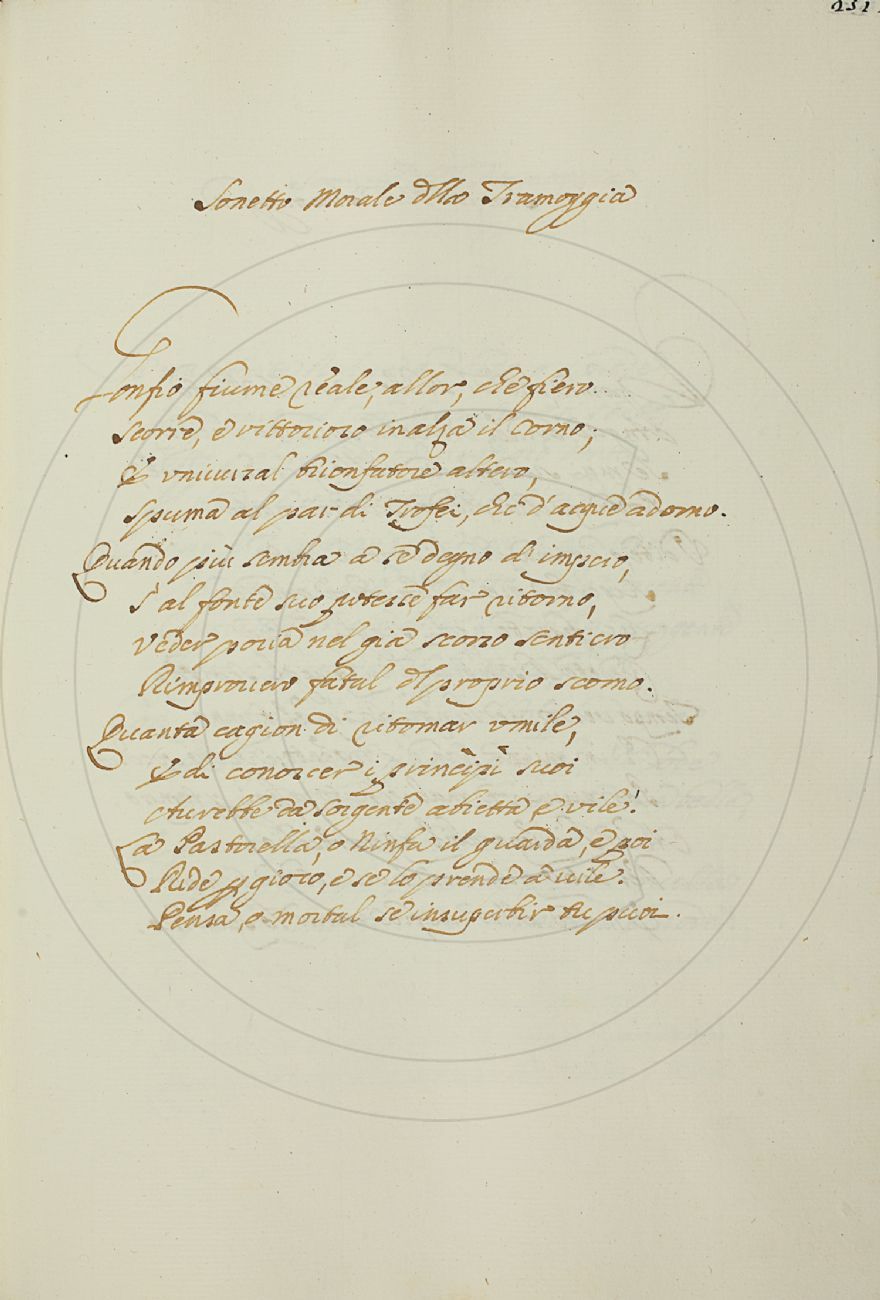 231
Sonetto Morale dlla Tramoggia
Gonfio fiume reale, allor, che fiero
scorre, e vittorioso inalza il Corno,
E vniversal trionfatore altero,
Spuma al par di Trofei, che d'acque adorno.
Quando più sembra a se degno d'impero,
S'al fonte suo potesse far ritorno,
Veder poria nel già scorso sentiero
Rimprovero fatal dl proprio scorno.
Quanta cagion di ritornar vmile,
E di conoscer i principi suoi
Avrebbe da Sorgente abietta, e vile!
La Pastorella, o Ninfa il guarda, e poi
Ride p gioco, e se lo prende a vile.
Pensa, o mortal se insuperbir tu puoi.